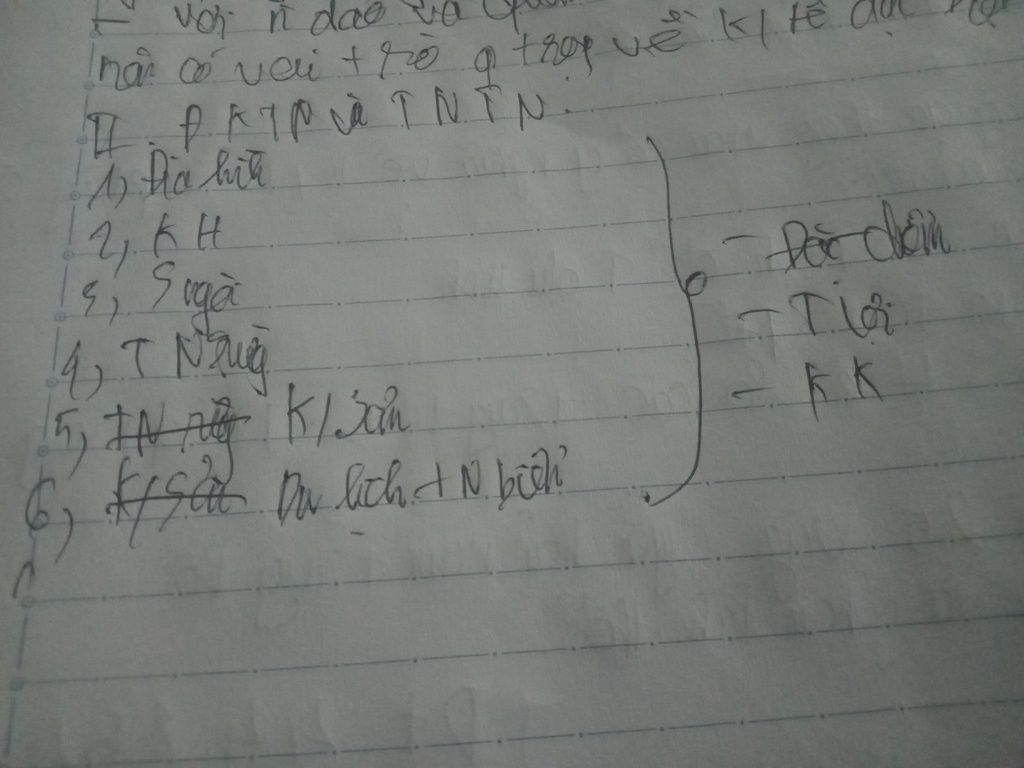 - với n đảo và quần
nà có vai trò q trọng về k/tế du
II ĐKTN và TNTN.
1, Địa hình
2, KH
3, S ngòi
4, T N rừng
5, TN rừng K/sản
6, K/sản Du lịch + N biển
- Đặc điểm
- T lợi
- KK